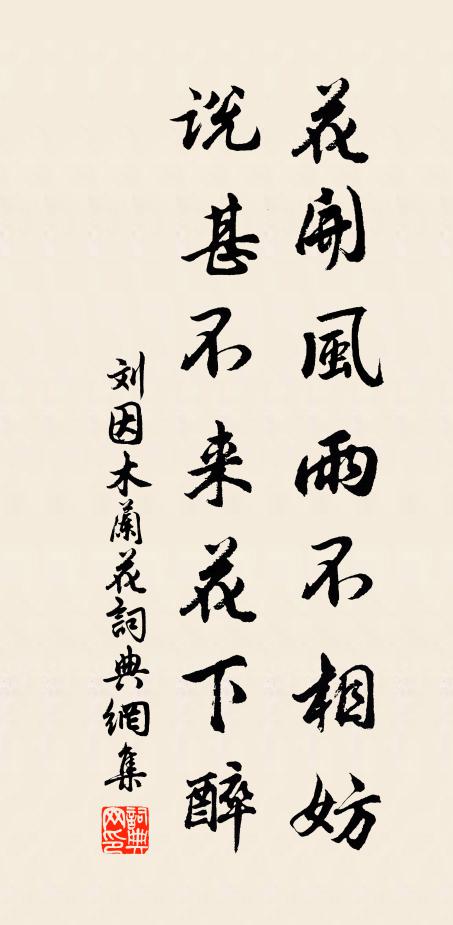 花開風雨不相妨
説甚不来花下醉
刘因木蘭花詞典網集
詞典網印